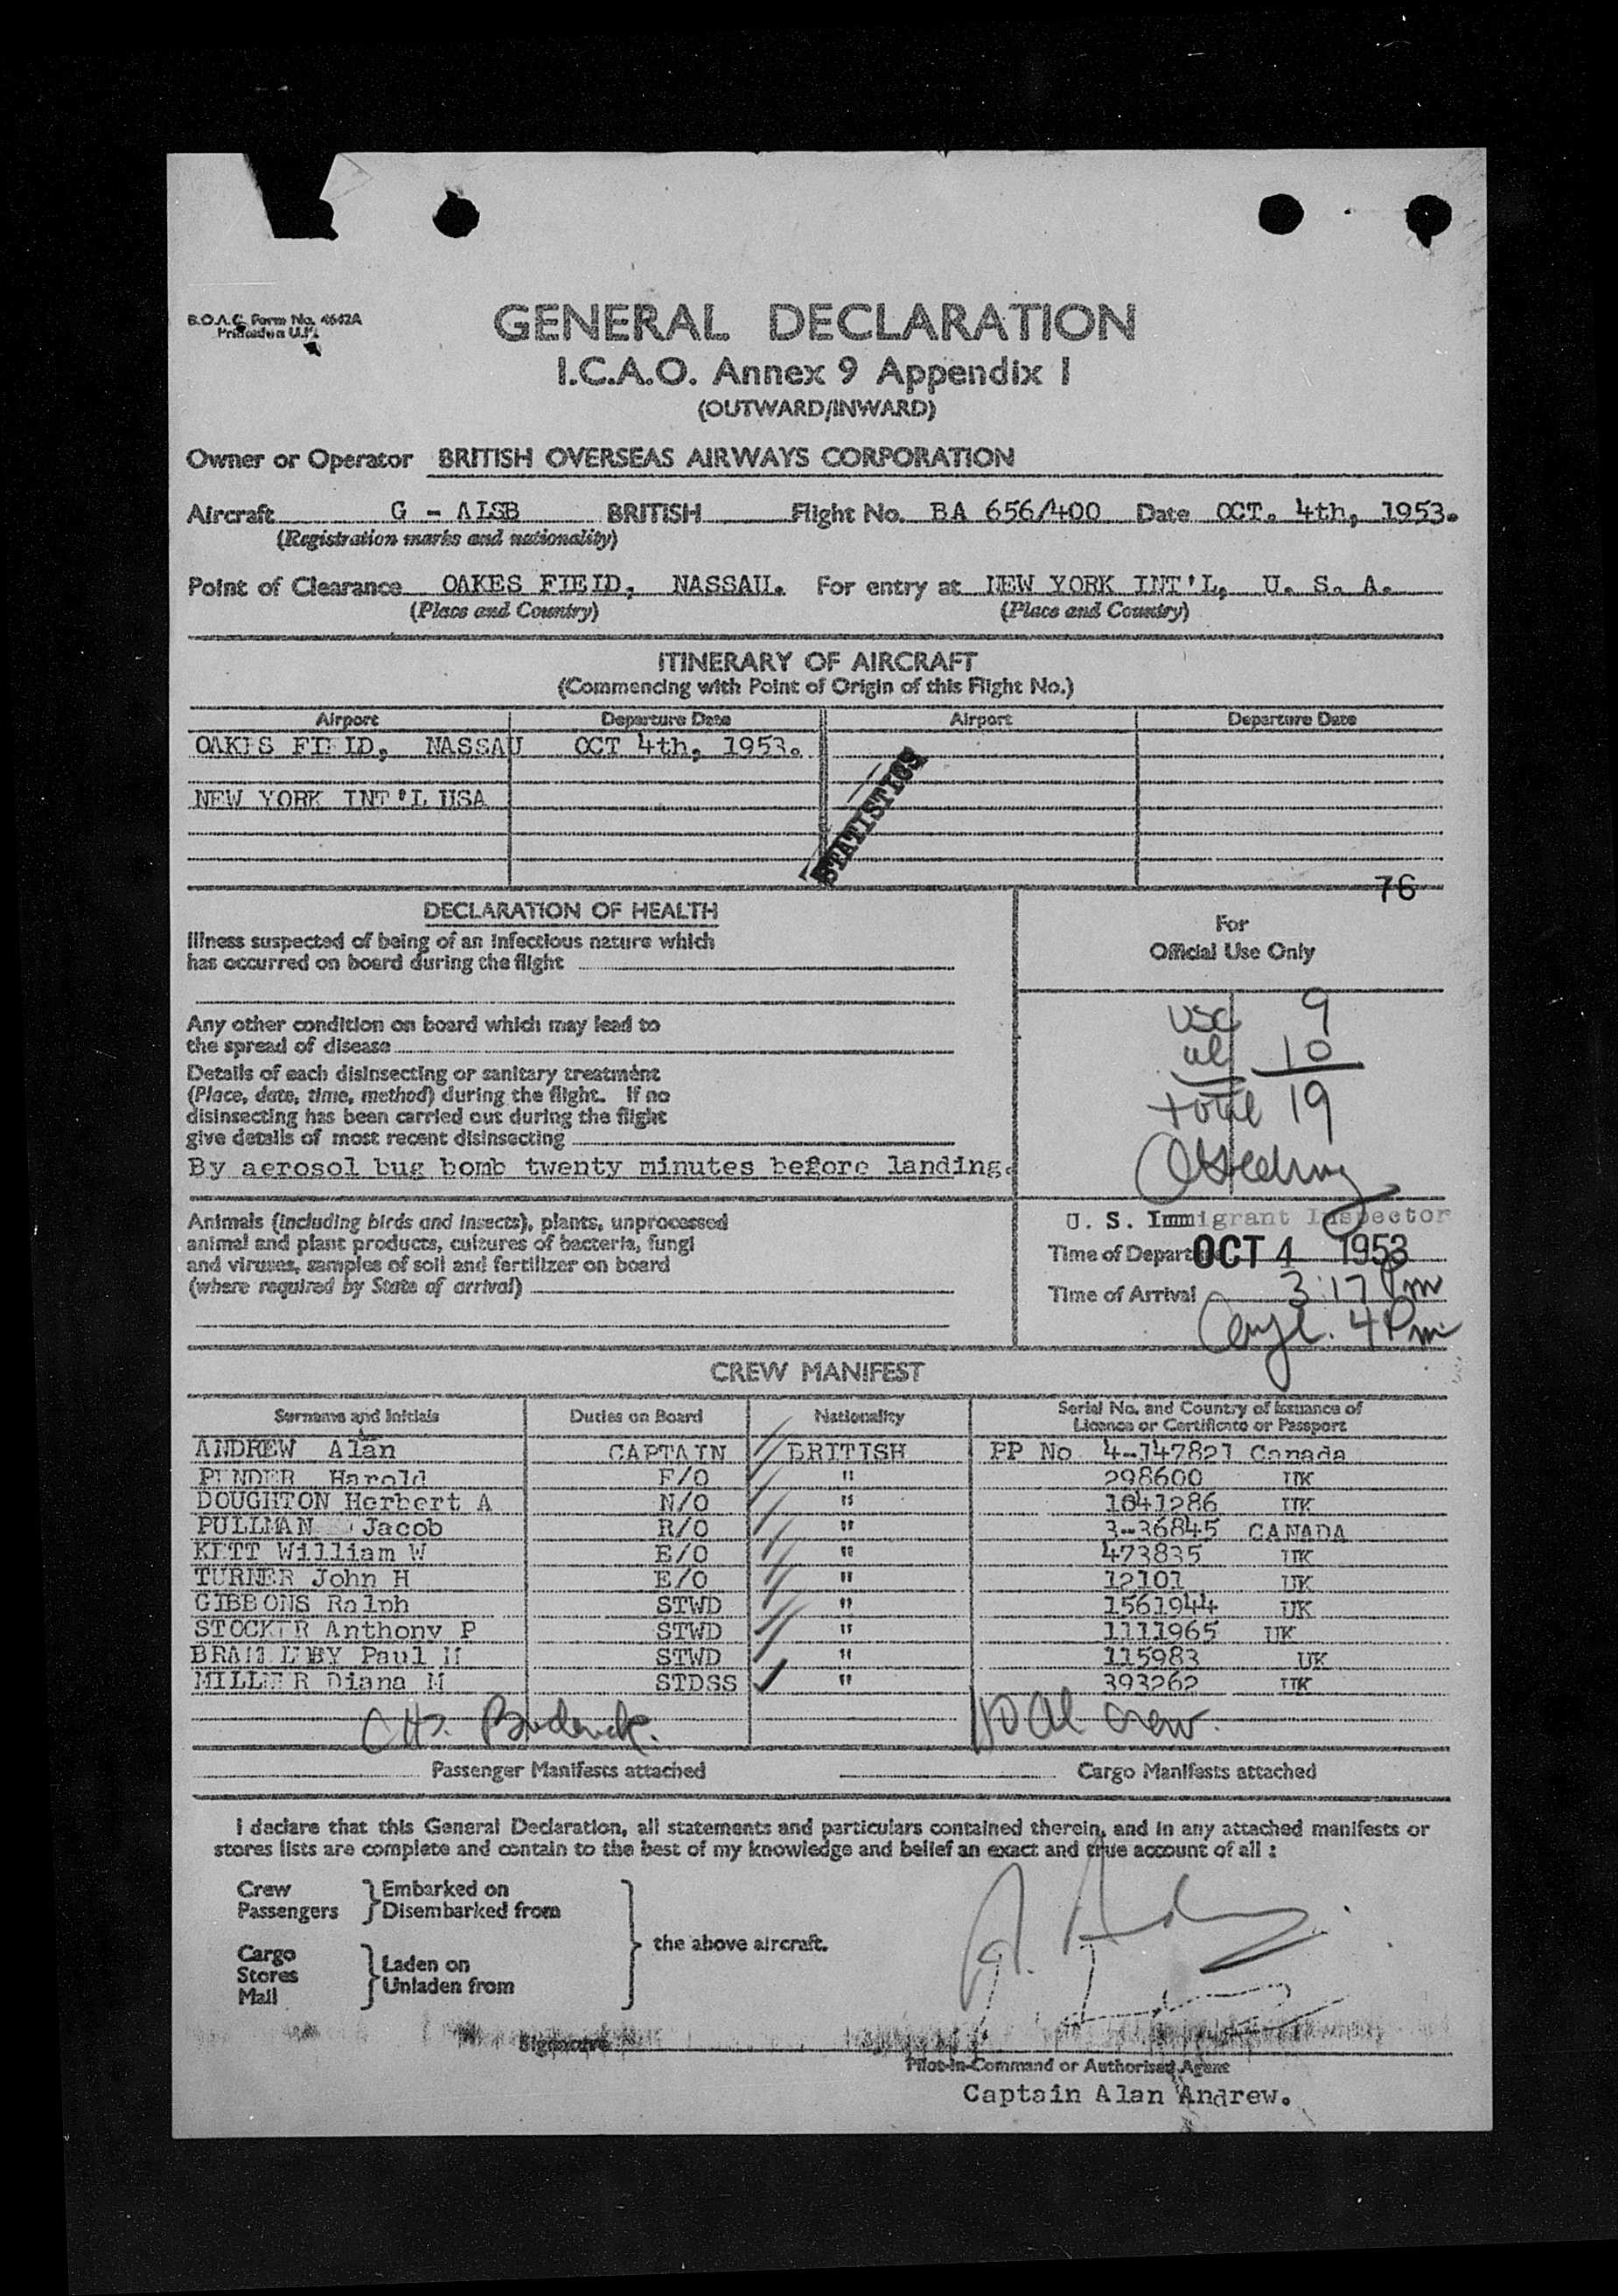 B.O.A.C. Form No. 4642A
Printed in U.K.
GENERAL DECLARATION
I.C.A.O. Annex 9 Appendix I
(OUTWARD/INWARD)
Owner or Operator BRITISH OVERSEAS AIRWAYS CORPORATION
Aircraft G - ALSB BRITISH Flight No. BA 656/400 Date OCT. 4th, 1953.
(Registration marks and nationality)
Point of Clearance OAKES FIELD, NASSAU. For entry at NEW YORK INT'L, U. S. A.
(Place and Country) (Place and Country)
ITINERARY OF AIRCRAFT
(Commencing with Point of Origin of this Flight No.)
Airport Departure Date Airport Departure Date
OAKES FIELD, NASSAU OCT 4th, 1953.
NEW YORK INT'L USA
STATISTICS
76
DECLARATION OF HEALTH
Illness suspected of being of an infectious nature which
has occurred on board during the flight
Any other condition on board which may lead to
the spread of disease
Details of each disinsecting or sanitary treatment
(Place, date, time, method) during the flight. If no
disinsecting has been carried out during the flight
give details of most recent disinsecting
By aerosol bug bomb twenty minutes before landing.
Animals (including birds and insects), plants, unprocessed
animal and plant products, cultures of bacteria, fungi
and viruses, samples of soil and fertilizer on board
(where required by State of arrival)
For
Official Use Only
USC 9
al 10
total 19
U. S. Immigrant Inspector
Time of Departure OCT 4 1953
Time of Arrival 3:17 Pm
4 Pm
CREW MANIFEST
Surname and Initials Duties on Board Nationality Serial No. and Country of Issuance of
Licence or Certificate or Passport
ANDREW Alan CAPTAIN BRITISH PP No 4-147821 Canada
PENDER Harold F/O " 298600 UK
DOUGHTON Herbert A N/O " 1041286 UK
PULLMAN Jacob R/O " 3-36845 CANADA
KETT William W E/O " 473835 UK
TURNER John H E/O " 12101 UK
GIBBONS Ralph STWD " 1561944 UK
STOCKER Anthony P STWD " 1111965 UK
Paul STWD " 115983 UK
MILLER Diana M STDSS " 393262 UK
10 al crew.
Passenger Manifests attached Cargo Manifests attached
I declare that this General Declaration, all statements and particulars contained therein, and in any attached manifests or
stores lists are complete and contain to the best of my knowledge and belief an exact and true account of all :
Crew
Passengers
Embarked on
Disembarked from
Cargo
Stores
Mail
Laden on
Unladen from
the above aircraft.
Signature
Pilot-in-Command or Authorised Agent
Captain Alan Andrew.